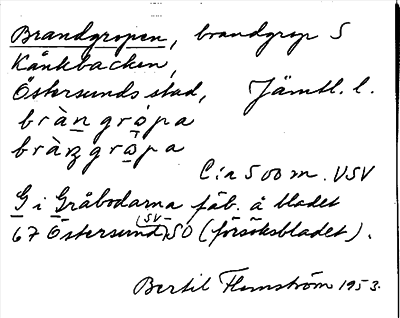 Brandgropen, brandgrop S
Kånkbacken,
Östersunds stad, Jämtl. l.
bràn gròpa
bràn̥ gròpa
C:a 500 m. VSV
G i Gråbodarna fäb. å bladet
67 Östersund (SV) SO (försöksbladet).
Bertil Flemström 1953.